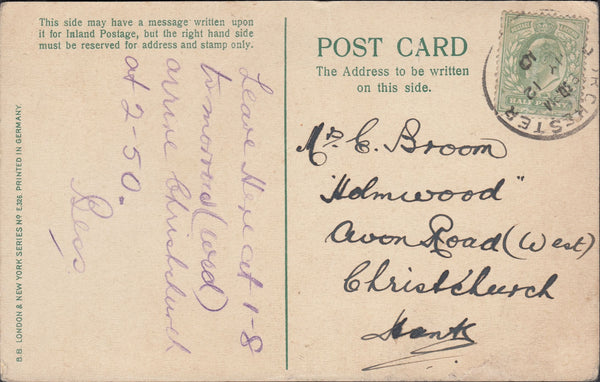 This side may have a message written upon
it for Inland Postage, but the right hand side
must be reserved for address and stamp only.
POST CARD
The Address to be written
on this side.
Leave Here at 1-8
tomorrow (Wed)
arrive Christchurch
at 2-50.
Bess.
Mrs C. Broom
"Holmwood"
Avon Road (West)
Christchurch
Hants
B.B. LONDON & NEW YORK SERIES No E.326. PRINTED IN GERMANY.
DORCHESTER